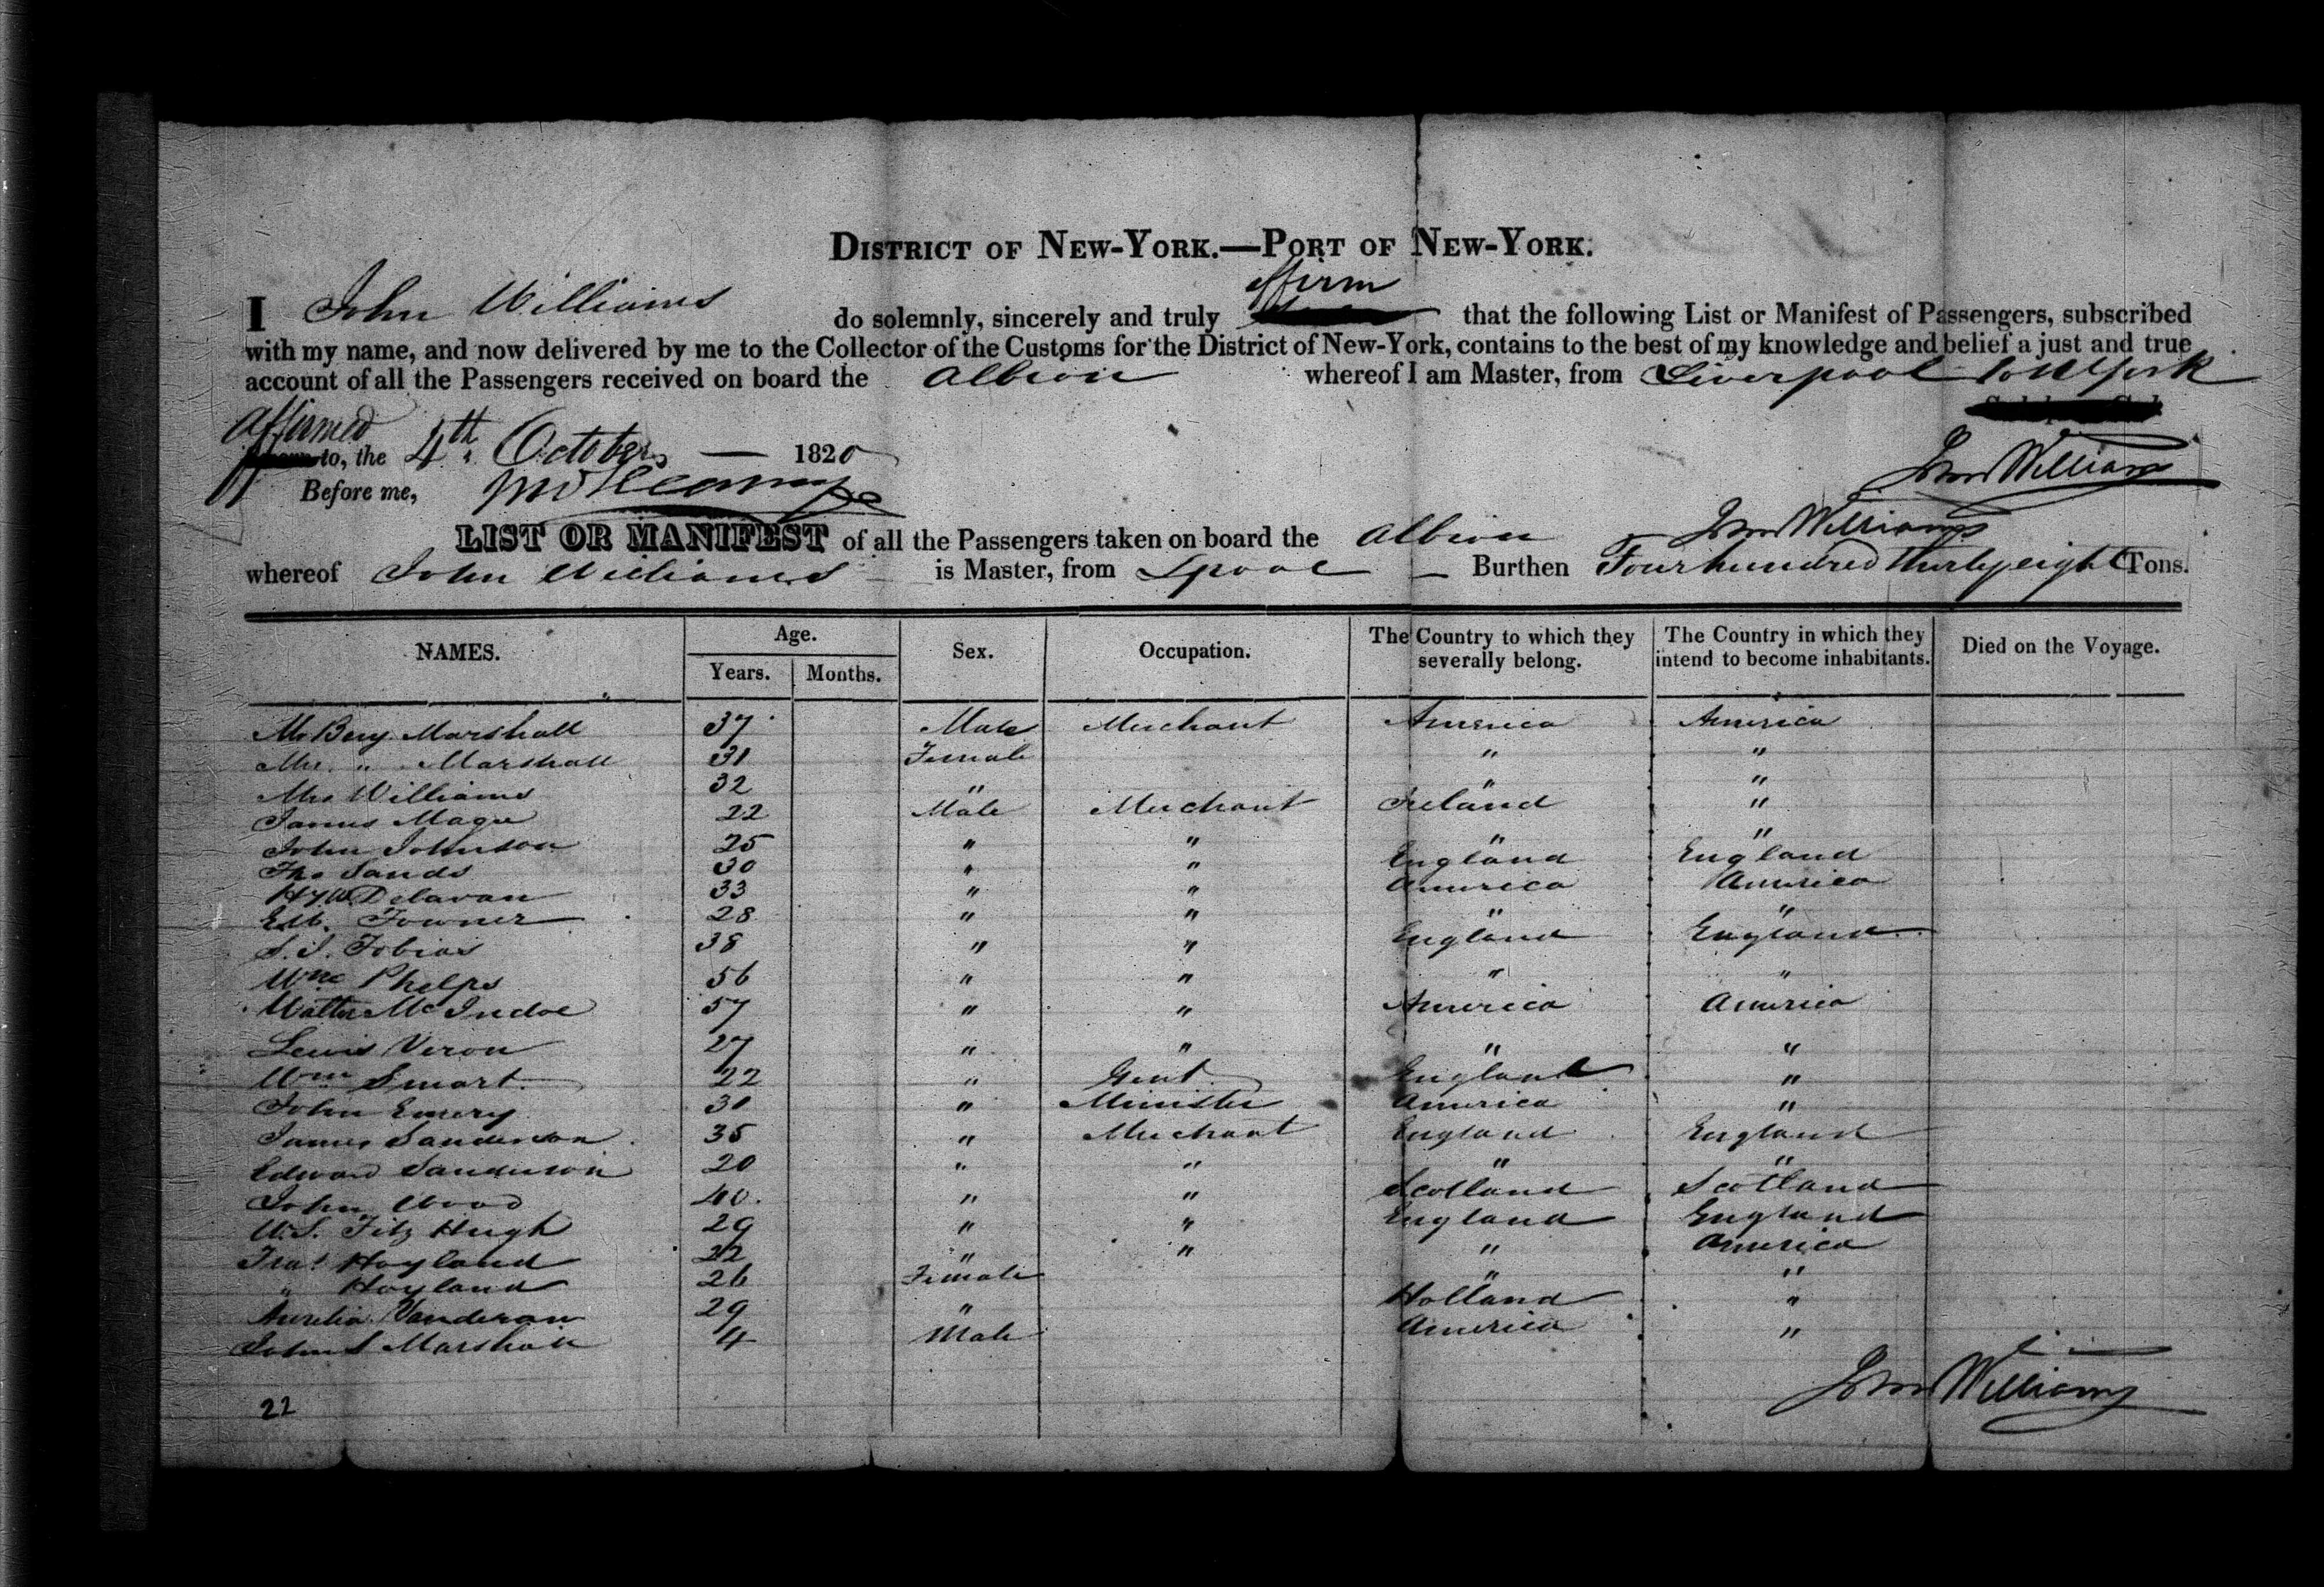 DISTRICT OF NEW-YORK.—PORT OF NEW-YORK.
affirm
I John Williams do solemnly, sincerely and truly that the following List or Manifest of Passengers, subscribed
with my name, and now delivered by me to the Collector of the Customs for the District of New-York, contains to the best of my knowledge and belief a just and true
account of all the Passengers received on board the Albion whereof I am Master, from Liverpool to NYork
Affirmed
to, the 4th October 1820
John Williams
Before me,
LIST OR MANIFEST of all the Passengers taken on board the Albion John Williams
whereof John Williams is Master, from Lpool Burthen Four hundred thirty eight Tons.
NAMES. Age. Sex. Occupation. The Country to which they severally belong. The Country in which they intend to become inhabitants. Died on the Voyage.
Years. Months.
Mr Benj Marshall 37 Male Merchant America America
Mrs " Marshall 31 Female " "
Mrs Williams 32 " " "
James Magee 22 Male Merchant Ireland "
John Johnson 25 " " " "
Tho Sands 30 " " England England
Hy W Delavan 33 " " America America
Towner 28 " " " "
S. I. Tobias 38 " " England England
Wm Phelps 56 " " " "
Walter McIndoe 57 " " America America
Lewis Veron 27 " " " "
Wm Smart 22 " Gent England "
John Emery 30 " Minister America "
James Sanderson 35 " Merchant England England
Edward Sanderson 20 " " " "
John Wood 40 " " Scotland Scotland
W. S. Fitz Hugh 29 " " England England
Hoyland 22 " " " America
" Hoyland 26 Female " "
Aurelia Vanderan 29 " Holland "
John S Marshall 4 Male America "
John Williams
22